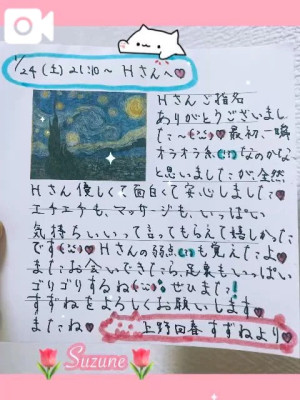 1/24(土)21:10〜 Hさんへ
Hさんご指名
ありがとうございまし
た〜 最初、一瞬
オラオラ系なのかな
と思いましたが、全然
Hさん優しくて面白くて安心しました
エチエチも、マッサージも、いっぱい
気持ちいいって言ってもらえて嬉しかった
です Hさんの弱点も覚えたよ
またお会いできたら、足裏もいっぱい
ゴリゴリするね ぜひまた!
すずねをよろしくお願いします。
またね 上野回春 すずねより
Suzune